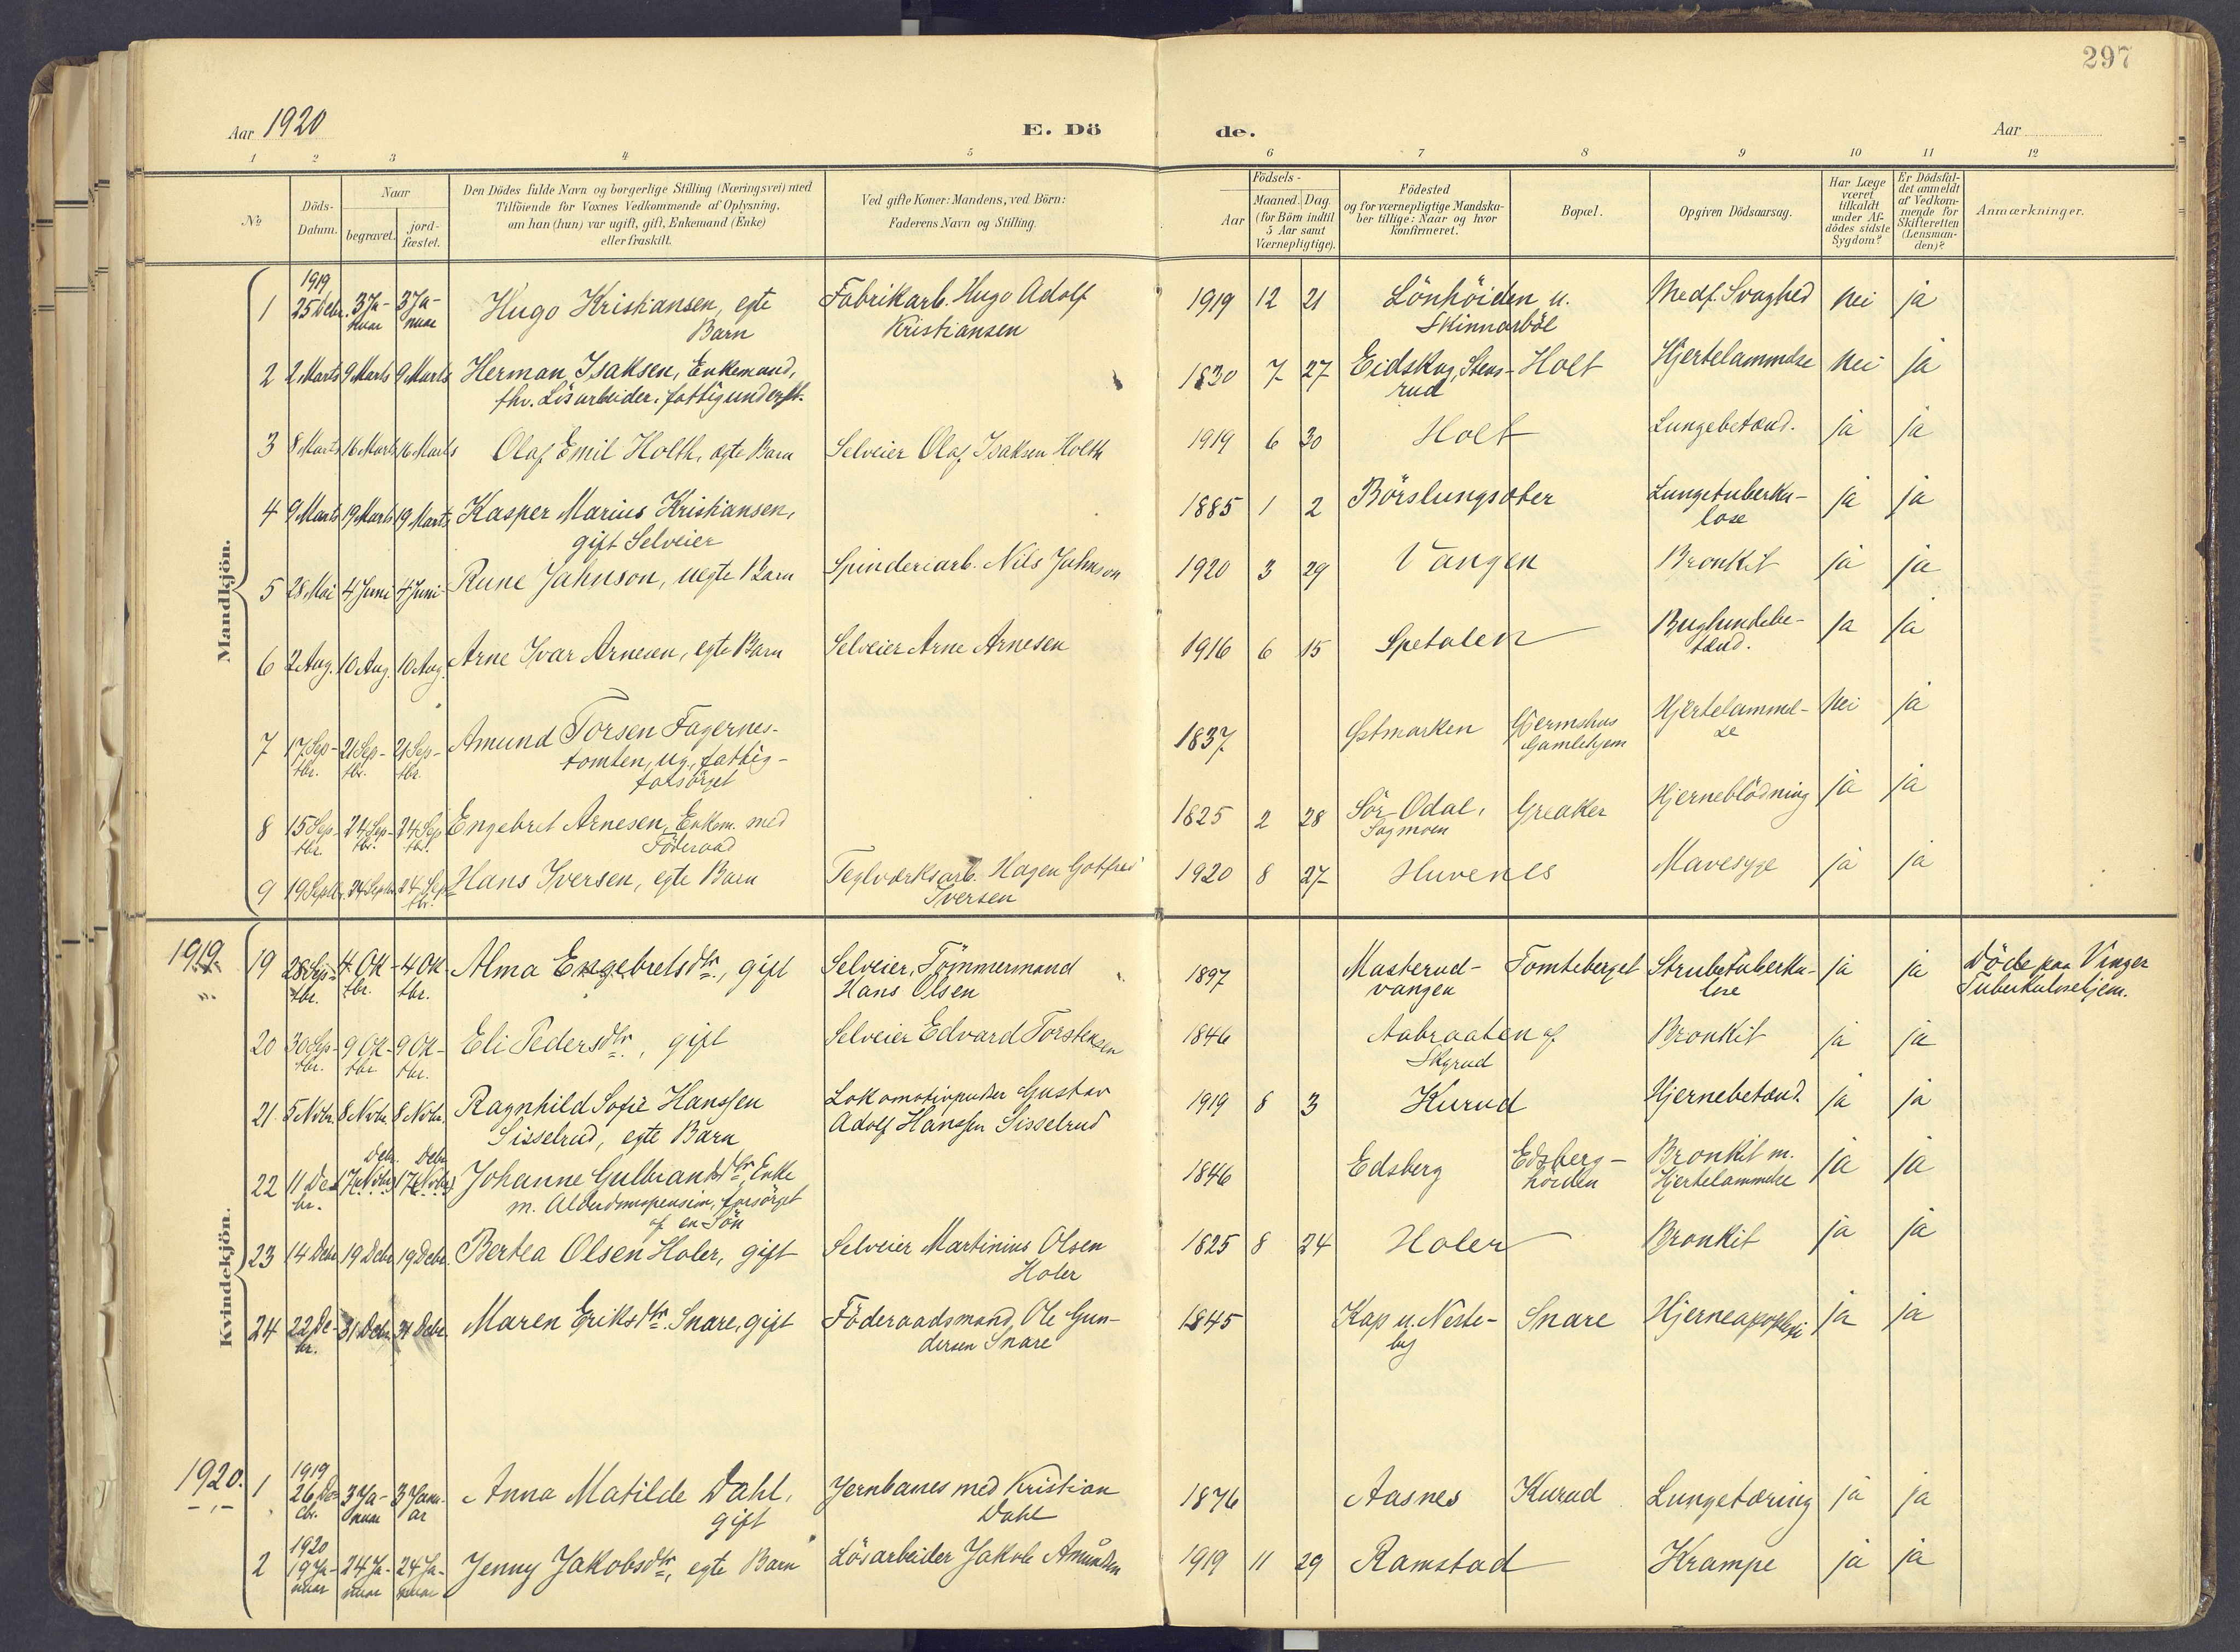 297
Aar 1920
E. Dö
de.
Aar
1 2 3 4 5 6 7 8 9 10 11 12
№
Döds-Datum.
Naar
begravet.
jord-fæstet.
Den Dödes fulde Navn og borgerlige Stilling (Næringsvei) med
Tilföiende for Voxnes Vedkommende af Oplysning,
om han (hun) var ugift, gift, Enkemand (Enke)
eller fraskilt.
Ved gifte Koner: Mandens, ved Börn:
Faderens Navn og Stilling.
Födsels-
Aar
Maaned. Dag.
(for Börn indtil
5 Aar samt
Værnepligtige).
Födested
og for værnepligtige Mandska-
ber tillige: Naar og hvor
konfirmeret.
Bopæl.
Opgiven Dödsaarsag.
Har Læge
været
tilkaldt
under Af-
dödes sidste
Sygdom?
Er Dödsfal-
det anmeldt
af Vedkom-
mende for
Skifteretten
(Lensman-
den)?
Anmærkninger.
Mandkjön.
1 1919 25 Debr. 3 Ja-nuar 3 Ja-nuar Hugo Kristiansen, egte Barn Fabrikarb. Hugo Adolf Kristiansen 1919 12 21 Lönhöiden u. Skinnarböl Medf. Svaghed nei ja
2 2 Marts 9 Marts 9 Marts Herman Isaksen, Enkemand, fhv. Lösarbeider. fattigunderst. 1830 7 27 Eidskog, Stens-rud Holt Hjertelammelse nei ja
3 8 Marts 16 Marts 16 Marts Olaf Emil Holth, egte Barn Selveier Olaf Isaksen Holth 1919 6 30 Holt Lungebetænd. ja ja
4 9 Marts 19 Marts 19 Marts Kasper Marius Kristiansen, gift Selveier 1885 1 2 Börslungsæter Lungetuberku-lose ja ja
5 28 Mai 4 Juni 4 Juni Rune Jahnson, uegte Barn Spinderiarb. Nils Jahnson 1920 3 29 Vangen Bronkit ja ja
6 2 Aug. 10 Aug. 10 Aug. Arne Ivar Arnesen, egte Barn Selveier Arne Arnesen 1916 6 15 Spetalen Bughindebe-tænd. ja ja
7 17 Sep-tbr. 21 Sep-tbr. 21 Sep-tbr. Amund Torsen Fagernes-tomten, ug., fattig-forsörget 1837 Östmarken Gjermshus Gamlehjem Hjertelammel-se nei ja
8 15 Sep-tbr. 24 Sep-tbr. 24 Sep-tbr. Engebret Arnesen, Enkem. med Föderaad 1825 2 28 Sör-Odal, Sagmoen Greaker Hjerneblödning ja ja
9 19 Septbr. 24 Septbr. 24 Sep-tbr. Hans Iversen, egte Barn Teglværksarb. Hagen Gotfred Iversen 1920 8 27 Huvenes Mavesyge ja ja
Kvindekjön.
1919
19 28 Sep-tbr. 4 Ok-tbr. 4 Ok-tbr. Alma Engebretsdtr., gift Selveier, Tömmermand Hans Olsen 1897 Masterud-vangen Tomteberget Strubetuberku-lose ja ja Döde paa Vinger Tuberkulosehjem.
20 30 Sep-tbr. 9 Ok-tbr. 9 Ok-tbr. Eli Pedersdtr., gift Selveier Edvard Torstensen 1846 Aabraaten af Skyrud Bronkit ja ja
21 5 Novbr. 8 Novbr. 8 Novbr. Ragnhild Sofie Hanssen Sisselrud, egte Barn Lokomotivpudser Gustav Adolf Hanssen Sisselrud 1919 8 3 Kurud Hjernebetænd. ja ja
22 11 De-br. 17 Debr. (Novbr.) 17 Debr. (Novbr.) Johanne Gulbrandsdtr., Enke m. Alderdomspension, forsörget af en Sön 1846 Edsberg Edsberg-höiden Bronkit m. Hjertelammelse ja ja
23 14 Debr. 19 Debr. 19 Debr. Bertea Olsen Holer, gift Selveier Martinius Olsen Holer 1825 8 24 Holer Bronkit ja ja
24 22 De-br. 31 Debr. 31 Debr. Maren Eriksdtr. Snare, gift Föderaadsmand Ole Gun-dersen Snare 1845 Kap u. Neste-by Snare Hjerneapopleksi ja ja
1920.
1 1919 26 De-cbr. 3 Ja-nuar 3 Janu-ar Anna Matilde Dahl, gift Jernbanesmed Kristian Dahl 1876 Aasnes Kurud Lungetæring ja ja
2 1920 19 Ja-nuar 24 Ja-nuar 24 Ja-nuar Jenny Jakobsdtr., egte Barn Lösarbeider Jakob Amundsen 1919 11 29 Ramstad Krampe ja ja